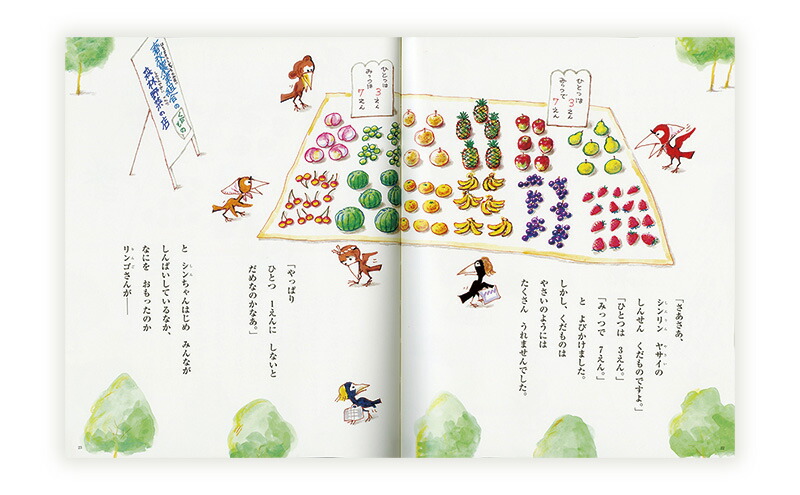 ひとつは
3えん
みっつで
7えん
「さあさあ、
シンリン ヤサイの
しんせん くだものですよ。」
「ひとつは 3えん。」
「みっつで 7えん。」
と よびかけました。
しかし、くだものは
やさいのようには
たくさん うれませんでした。
ひとつは
3えん
みっつは
7えん
くだもの
森林野菜の店
「やっぱり
ひとつ 1えんに しないと
だめなのかなあ。」
と シンちゃんはじめ みんなが
しんぱいしているなか、
なにを おもったのか
リンゴさんが——